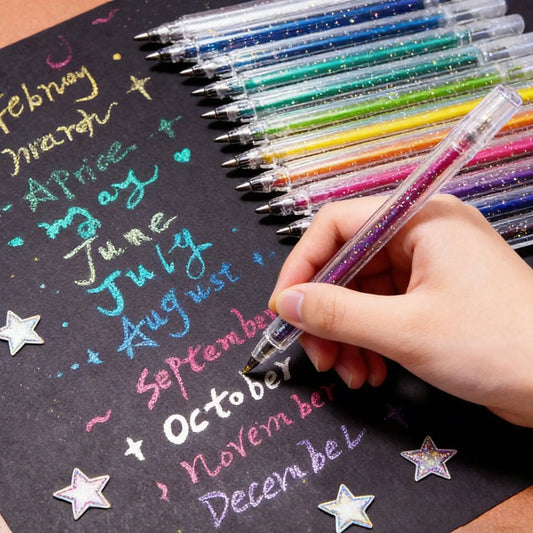 Februny
march
Aprice
may
June
July
August
September
October
november
Decembel